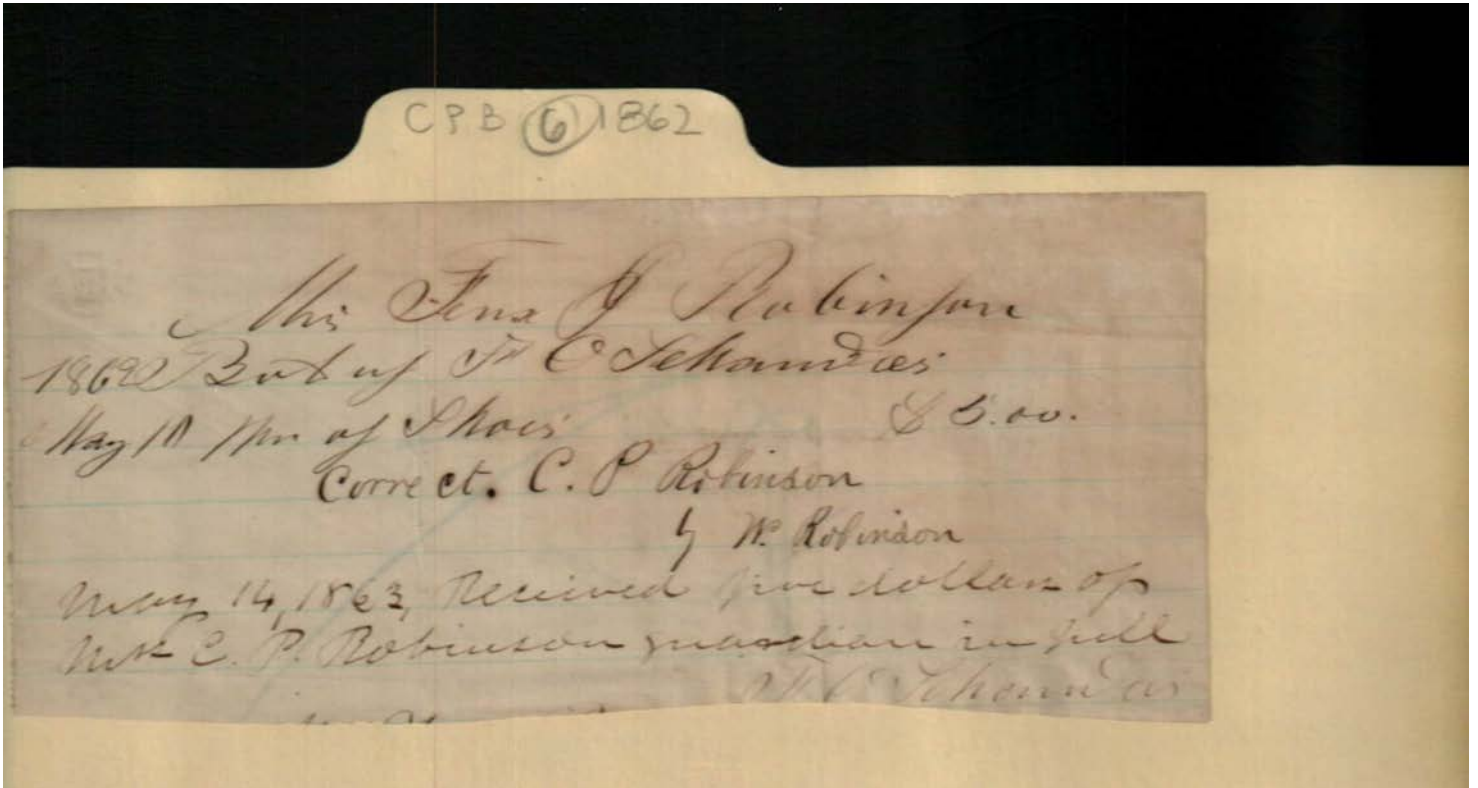 CPB 6 1862
Miss Tena J Robinson
1862 Bot of F C
May 10 Pr of Shoes $ 5.00.
Correct. C. P Robinson
by W. Robinson
May 14, 1863, Received five dollars of
Mrs C. P. Robinson guardian in full